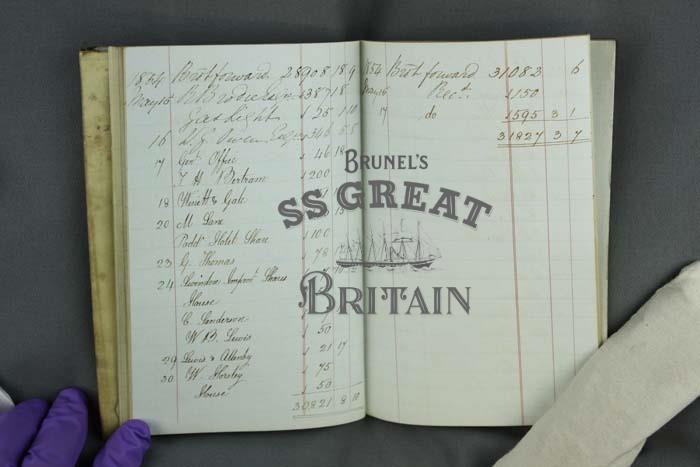 1854 Brot forward 28908 18 9
May 15 R Brodie Esqr 1387 18
Gas Light 25 1 10
16 346 5 5
17 Genl Office 46 18
T H Bertram 200
18 & Gale
20 M Lane
Paddn Hotel Share 100
23 G. Thomas 78
24 Swindon Improvt Shares
House
C. Sanderson
W. B. Lewis 50
29 Lewis & Allenby 21 17
30 W Horsley 75
House 50
30821 8 10
1854 Brot forward 31082 6
May 16 Rect 150
17 do 595 3 1
31827 3 7
BRUNEL'S
SS GREAT
BRITAIN